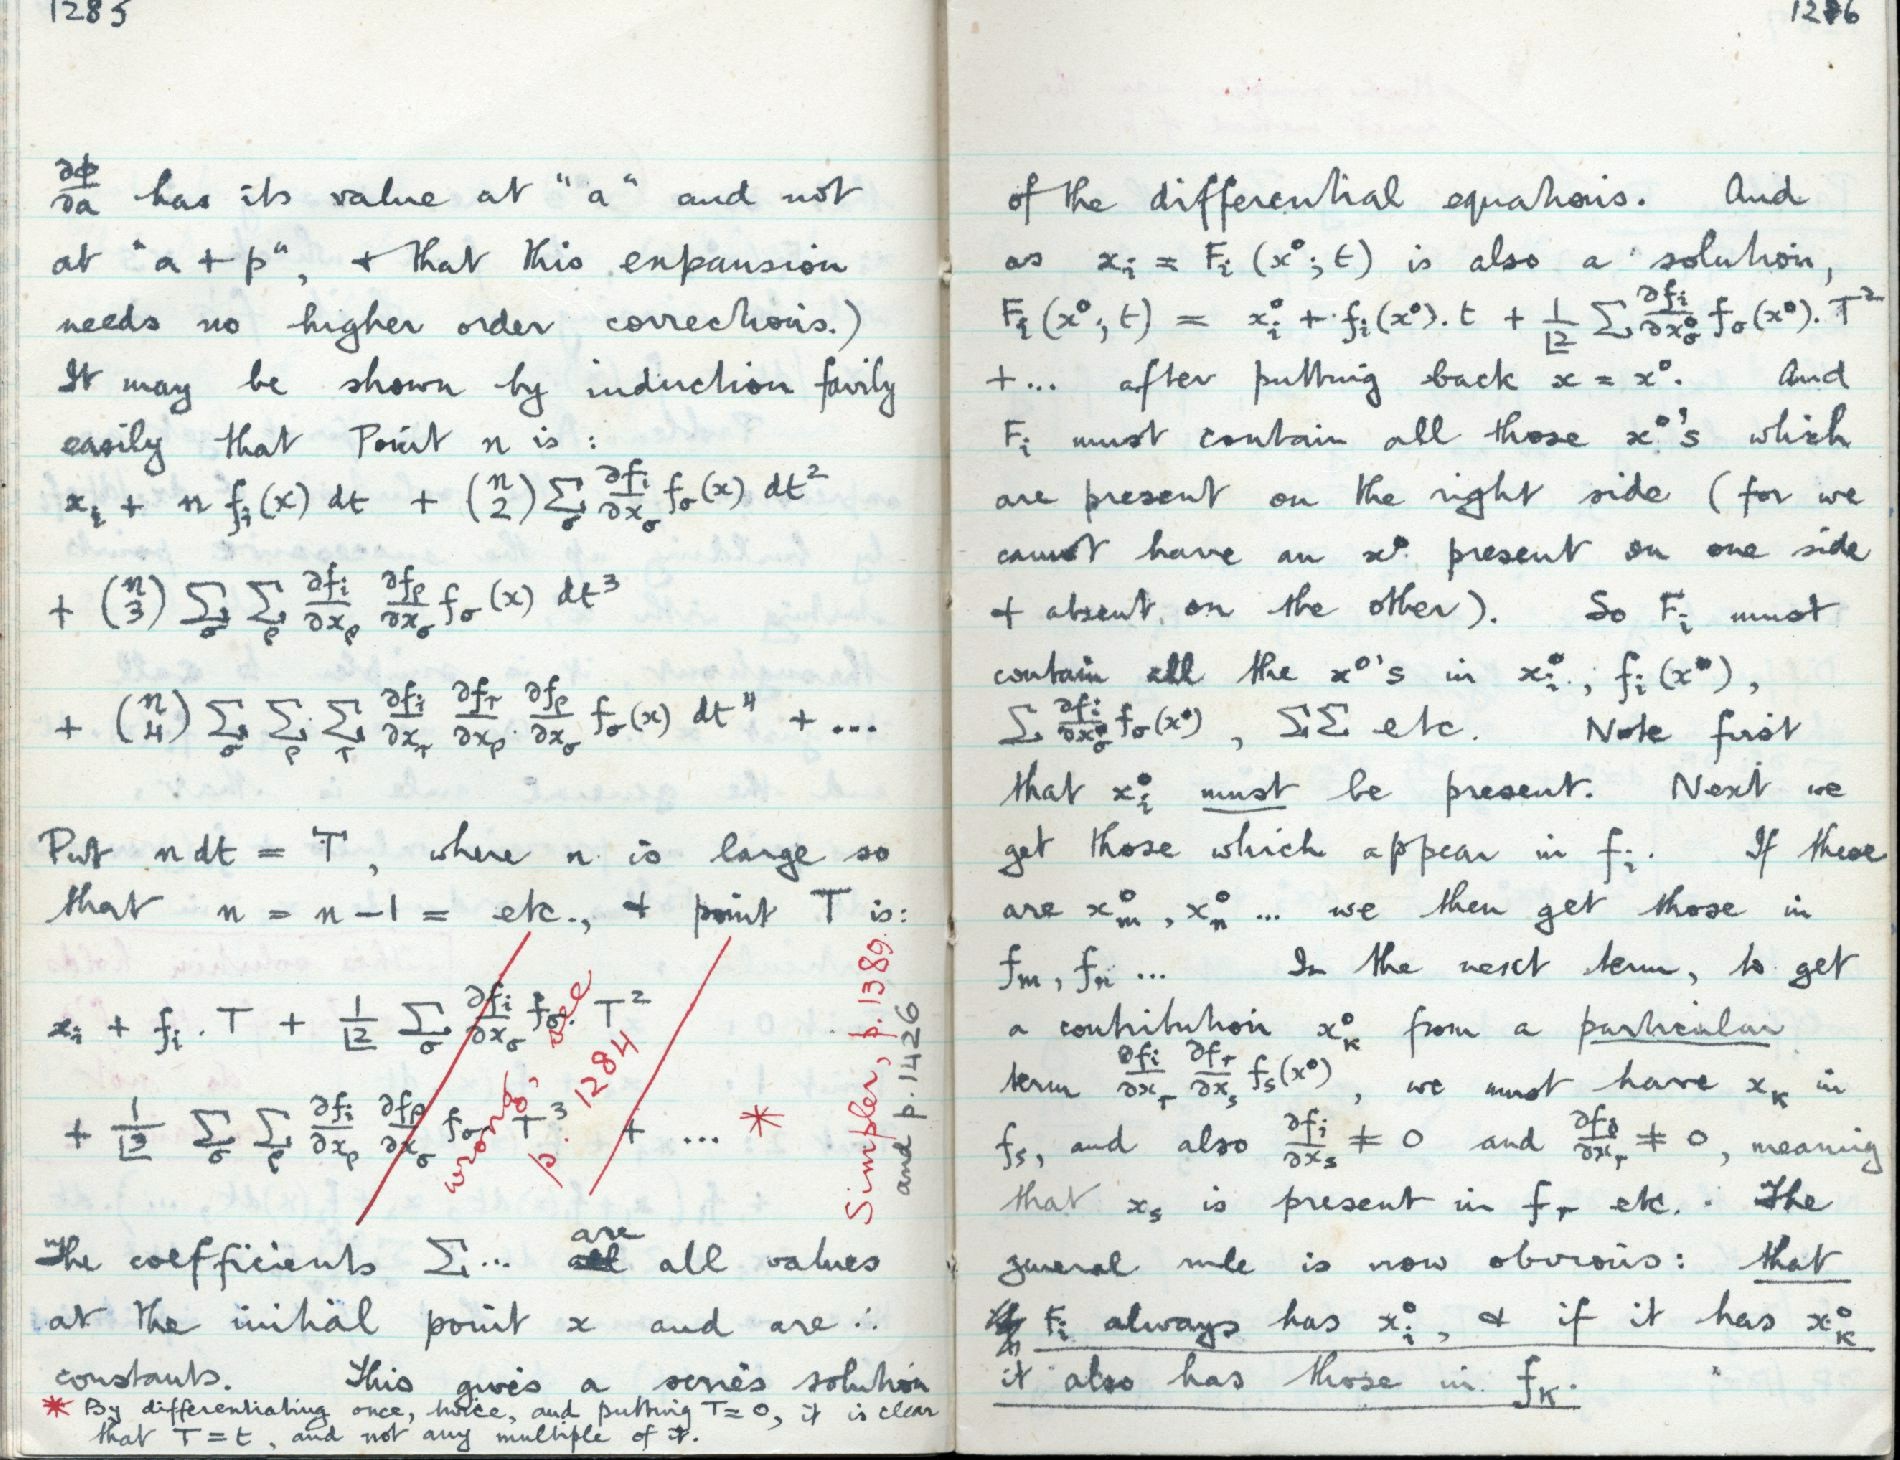 1285
∂φ/∂a has its value at "a" and not
at "a + p", + that this expansion
needs no higher order corrections.)
It may be shown by induction fairly
easily that Point n is:
xᵢ + n fᵢ(x) dt + (n 2) Σσ ∂fᵢ/∂xσ fσ(x) dt²
+ (n 3) Σσ Σρ ∂fᵢ/∂xρ ∂fρ/∂xσ fσ(x) dt³
+ (n 4) Σσ Σρ Στ ∂fᵢ/∂xτ ∂fτ/∂xρ ∂fρ/∂xσ fσ(x) dt⁴ + ...
Put n dt = T, where n is large so
that n = n − 1 = etc., + point T is:
xᵢ + fᵢ . T + 1/⌊2 Σσ ∂fᵢ/∂xσ fσ . T²
+ 1/⌊3 Σσ Σρ ∂fᵢ/∂xρ ∂fρ/∂xσ fσ T³ + ... *
wrong, see
p. 1284
Simpler, p. 1389
and p. 1426
The coefficients Σ... are all values
at the initial point x and are ∴
constants. This gives a series solution
* By differentiating once, twice, and putting T = 0, it is clear
that T = t, and not any multiple of it.
1286
of the differential equations. And
as xᵢ = Fᵢ (x⁰; t) is also a solution,
Fᵢ (x⁰; t) = xᵢ⁰ + fᵢ(x⁰). t + 1/⌊2 Σ ∂fᵢ/∂xσ⁰ fσ(x⁰). T²
+... after putting back x = x⁰. And
Fᵢ must contain all those x⁰'s which
are present on the right side (for we
cannot have an x⁰ present on one side
+ absent on the other). So Fᵢ must
contain all the x⁰'s in xᵢ⁰, fᵢ(x⁰),
Σ ∂fᵢ/∂xσ⁰ fσ(x⁰), ΣΣ etc. Note first
that xᵢ⁰ must be present. Next we
get those which appear in fᵢ. If these
are xₘ⁰, xₙ⁰ ... we then get those in
fₘ, fₙ ... In the next term, to get
a contribution xₖ⁰ from a particular
term ∂fᵢ/∂xᵣ ∂fᵣ/∂xₛ fₛ(x⁰), we must have xₖ in
fₛ, and also ∂fᵢ/∂xₛ ≠ 0 and ∂fₛ/∂xᵣ ≠ 0, meaning
that xₛ is present in fᵣ etc. The
general rule is now obvious: that
Fᵢ always has xᵢ⁰, & if it has xₖ⁰
it also has those in fₖ.